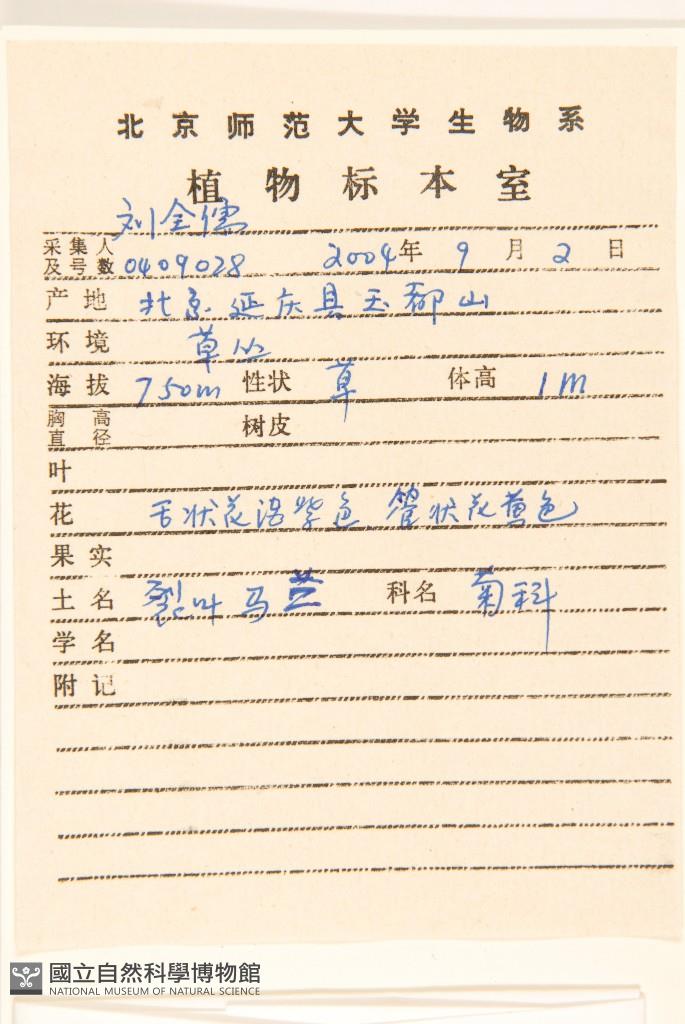 北京师范大学生物系
植物标本室
刘全儒
采集人及号数 0409028 2004年 9 月 2 日
产地 北京延庆县玉都山
环境 草丛
海拔 750m 性状 草 体高 1m
胸高直径 树皮
叶
花 舌状花浅紫色 管状花黄色
果实
土名 裂叶马兰 科名 菊科
学名
附记
國立自然科學博物館
NATIONAL MUSEUM OF NATURAL SCIENCE